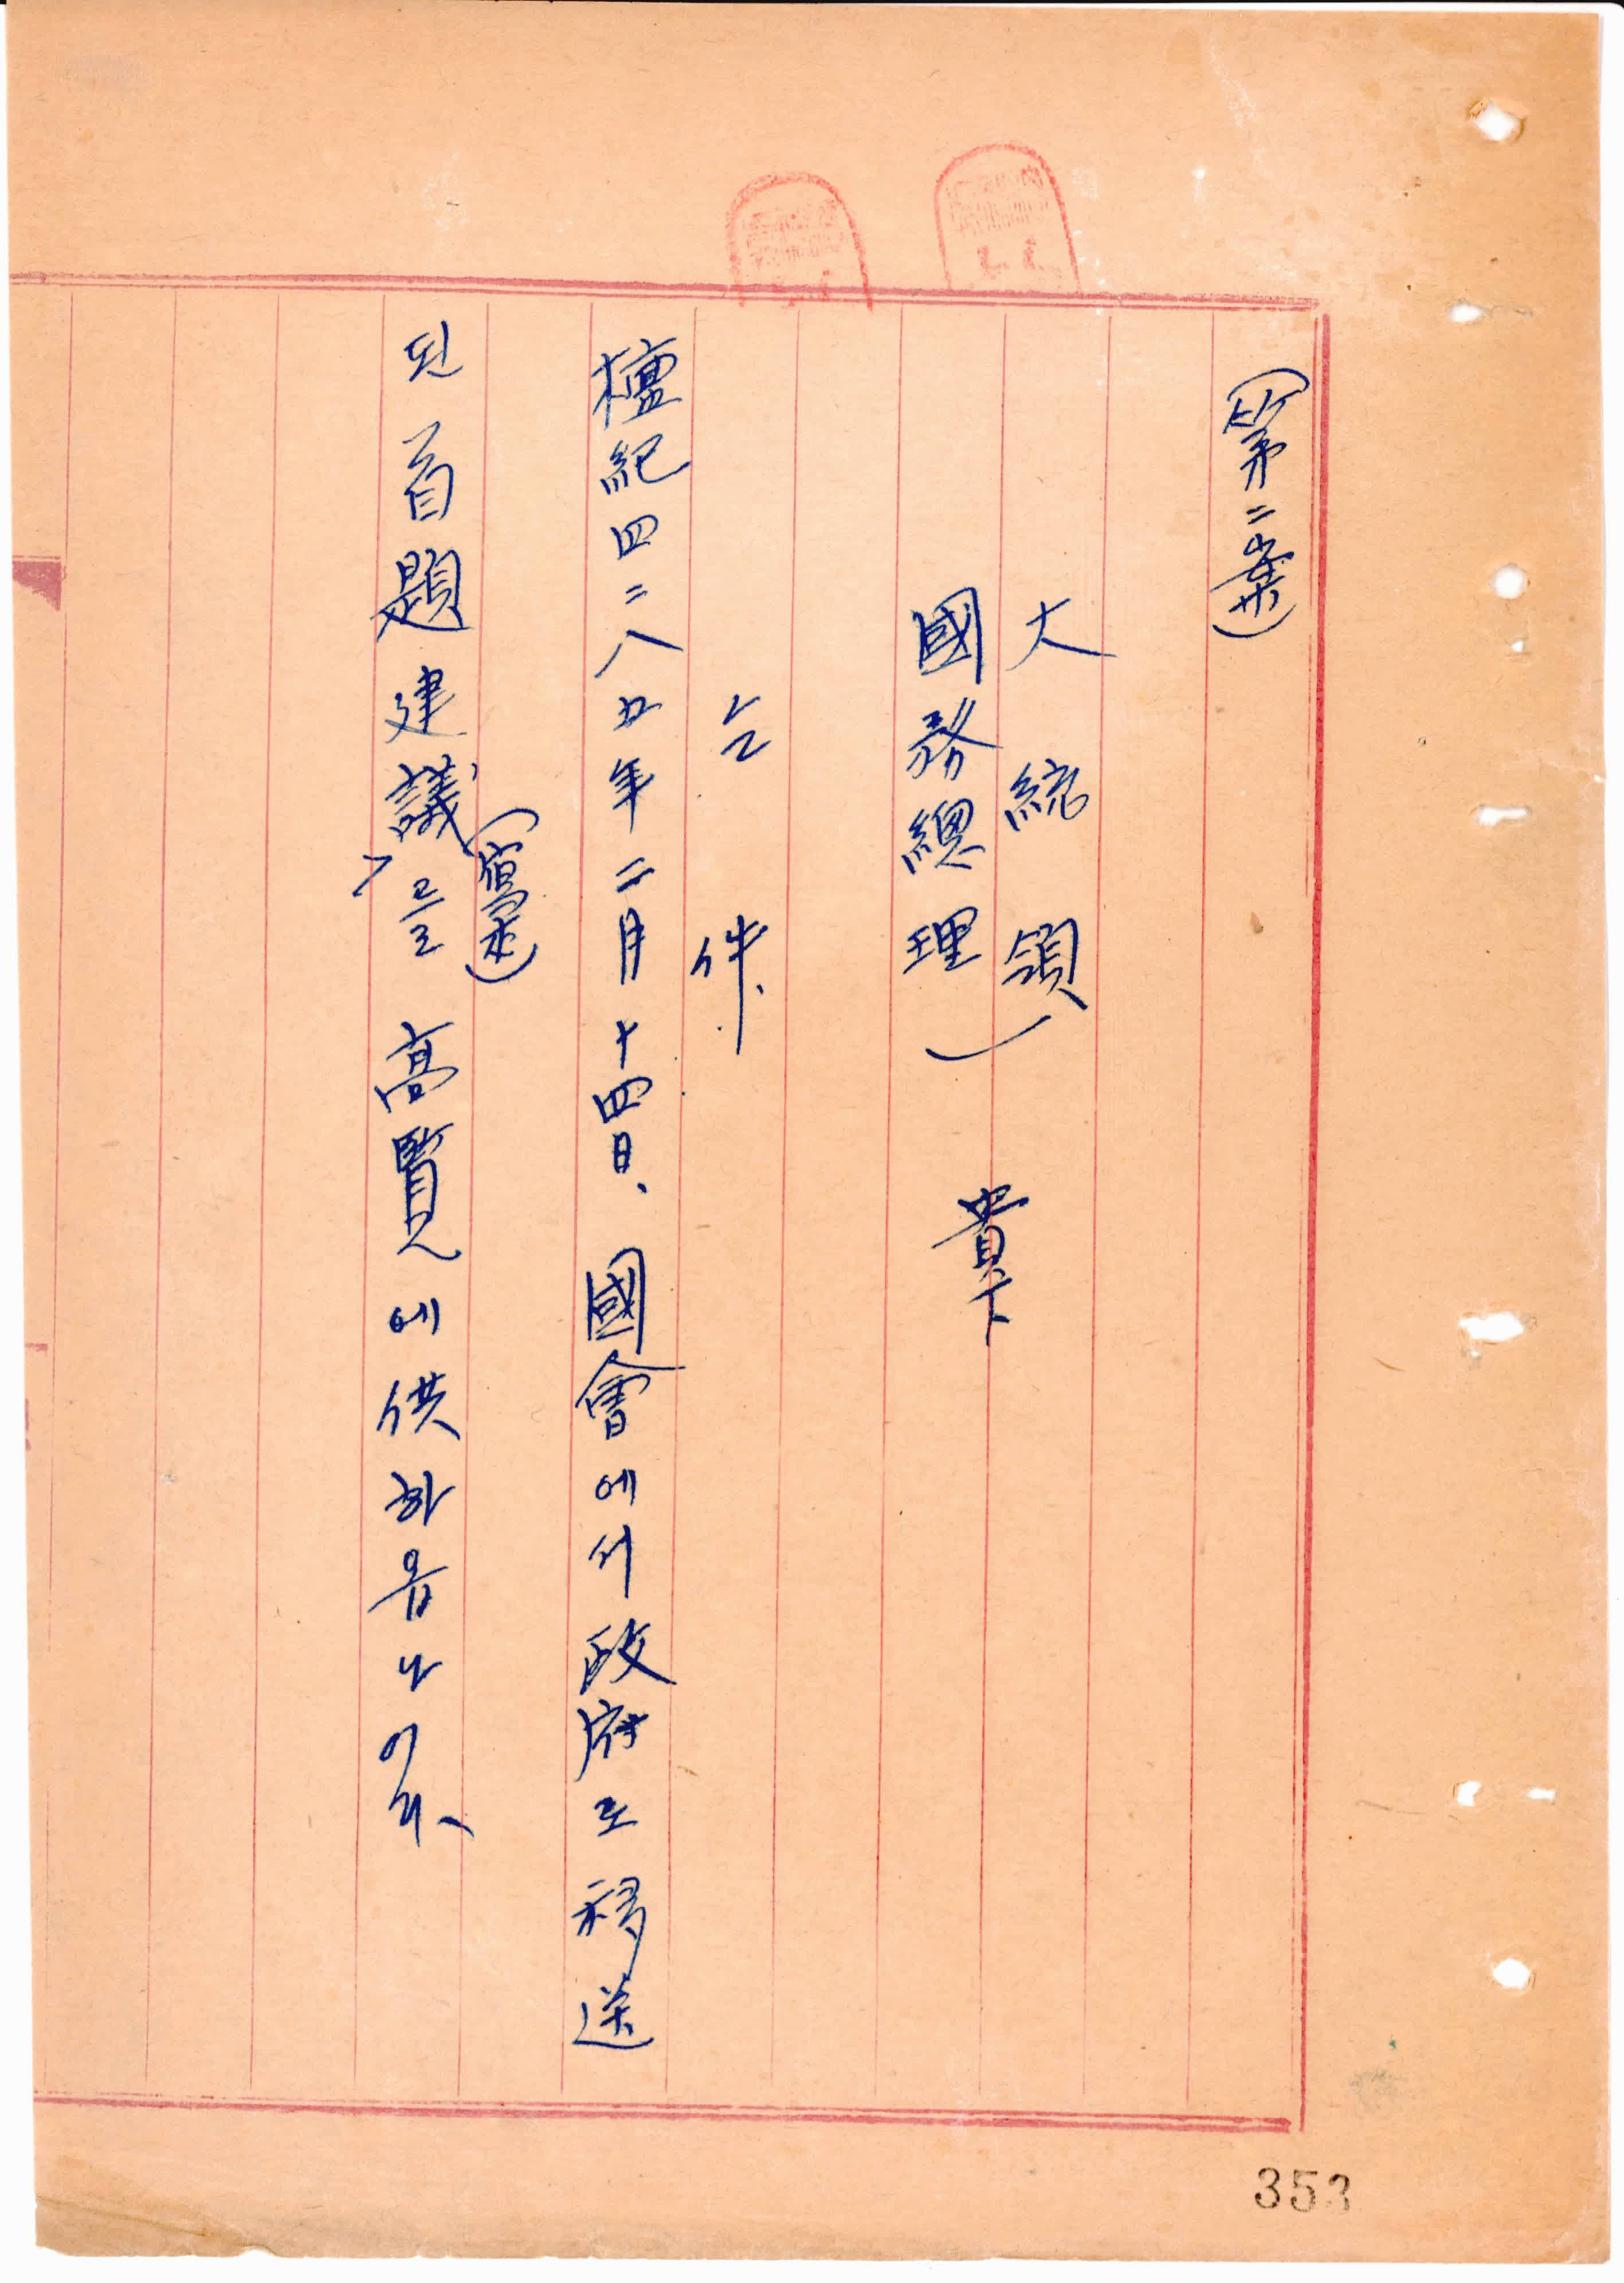 (第二案)
大統領
國務總理
貴下
仝 件、
檀紀四二八五年二月十四日、國會에서 政府로 移送
된 首題建議(寫本)를 高覽에 供하옵나이다、
353